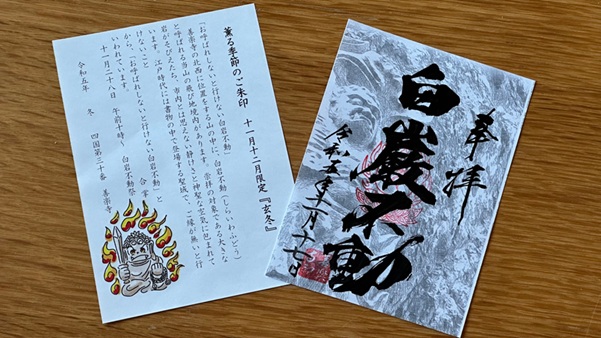 薫る季節のご朱印 十一月十二月限定『玄冬』
「お呼ばれしないと行けない白岩不動」
善楽寺の北西に位置をする山の中に、白岩不動(しらいわふどう)
と呼ばれる当山の飛び地境内があります。崇拝の対象である大きな
岩がそびえたち、市内とは思えない静けさと神聖な空気に包まれて
います。江戸時代には書物の中で登場する聖域で、ご縁が無いと行
けないこと
から、「お呼ばれしないと行けない白岩不動」と
いわれています。 合掌
十一月二十八日 午前十時~ 白岩不動祭
令和五年 冬 四国第三十番 善楽寺
奉拝
白巌不動
令和五年十二月十七日